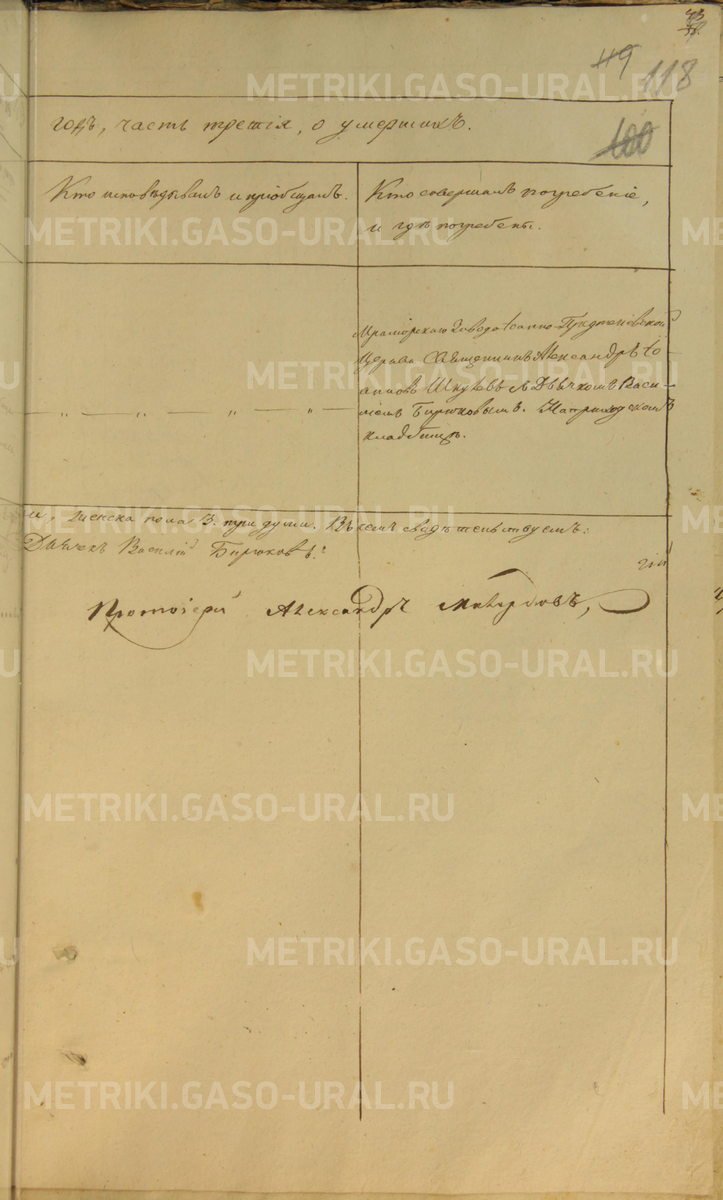 119 118
100
годъ, часть третія, о умершихъ.
Кто исповѣдывалъ и пріобщалъ.
Кто совершалъ погребеніе,
и гдѣ погребены.
Мраморскаго завода
Церкви Священникъ Александръ Іо
анновъ съ Дьячкомъ Васи-
ліемъ Бирюковымъ. На приходскомъ
кладбищѣ.
— „ — „ — „ — „ —
и, женска пола 3. три души. Въ семъ свидѣтельствуемъ:
Дьячекъ Василій Бирюковъ.
Протоіерей Александръ
METRIKI.GASO-URAL.RU
METRIKI.GASO-URAL.RU
METRIKI.GASO-URAL.RU
METRIKI.GASO-URAL.RU
METRIKI.GASO-URAL.RU
METRIKI.GASO-URAL.RU
METRIKI.GASO-URAL.RU
METRIKI.GASO-URAL.RU